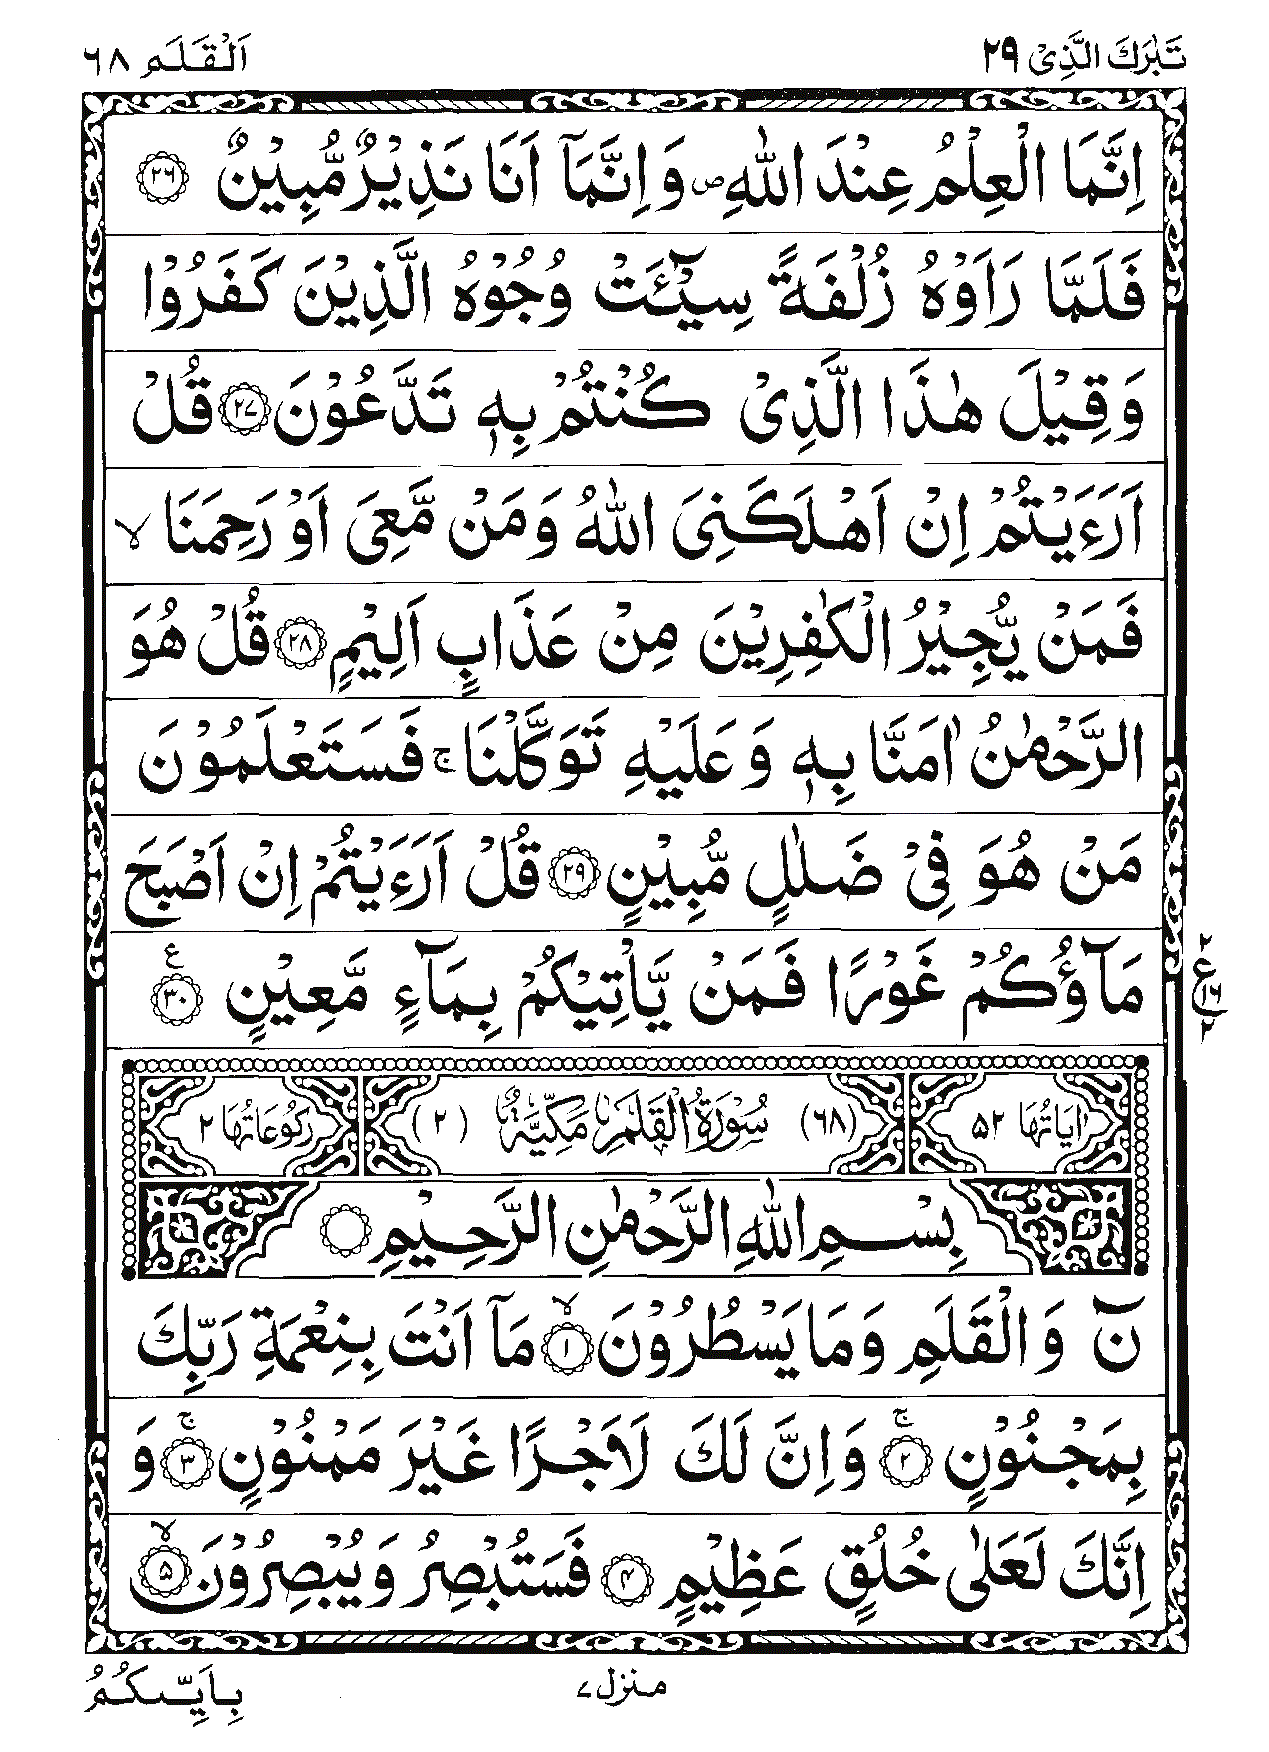 تَبٰرَكَ الَّذِىْ ٢٩ اَلْقَلَم ٦٨
اِنَّمَا الْعِلْمُ عِنْدَ اللّٰهِ ۪ وَ اِنَّمَاۤ اَنَا نَذِيْرٌ مُّبِيْنٌ ﴿٢٦﴾
فَلَمَّا رَاَوْهُ زُلْفَةً سِيْٓـَٔتْ وُجُوْهُ الَّذِيْنَ كَفَرُوْا
وَقِيْلَ هٰذَا الَّذِىْ كُنْتُمْ بِهٖ تَدَّعُوْنَ ﴿٢٧﴾ قُلْ
اَرَءَيْتُمْ اِنْ اَهْلَكَنِىَ اللّٰهُ وَمَنْ مَّعِىَ اَوْ رَحِمَنَا ۙ
فَمَنْ يُّجِيْرُ الْكٰفِرِيْنَ مِنْ عَذَابٍ اَلِيْمٍ ﴿٢٨﴾ قُلْ هُوَ
الرَّحْمٰنُ اٰمَنَّا بِهٖ وَ عَلَيْهِ تَوَكَّلْنَا ۚ فَسَتَعْلَمُوْنَ
مَنْ هُوَ فِىْ ضَلٰلٍ مُّبِيْنٍ ﴿٢٩﴾ قُلْ اَرَءَيْتُمْ اِنْ اَصْبَحَ
مَآؤُكُمْ غَوْرًا فَمَنْ يَّاْتِيْكُمْ بِمَآءٍ مَّعِيْنٍ ﴿٣٠﴾ ع
٢ ع ١٦ ٢
اٰيَاتُهَا ٥٢ (٦٨) سُوْرَةُ الْقَلَمِ مَكِّيَّةٌ (٢) رُكُوْعَاتُهَا ٢
بِسْمِ اللّٰهِ الرَّحْمٰنِ الرَّحِيْمِ
نٓ وَ الْقَلَمِ وَمَا يَسْطُرُوْنَ ۙ﴿١﴾ مَاۤ اَنْتَ بِنِعْمَةِ رَبِّكَ
بِمَجْنُوْنٍ ۚ﴿٢﴾ وَاِنَّ لَكَ لَاَجْرًا غَيْرَ مَمْنُوْنٍ ۚ﴿٣﴾ وَ
اِنَّكَ لَعَلٰى خُلُقٍ عَظِيْمٍ ﴿٤﴾ فَسَتُبْصِرُ وَ يُبْصِرُوْنَ ۙ﴿٥﴾
منزل ٧
بِاَيِّىكُمُ